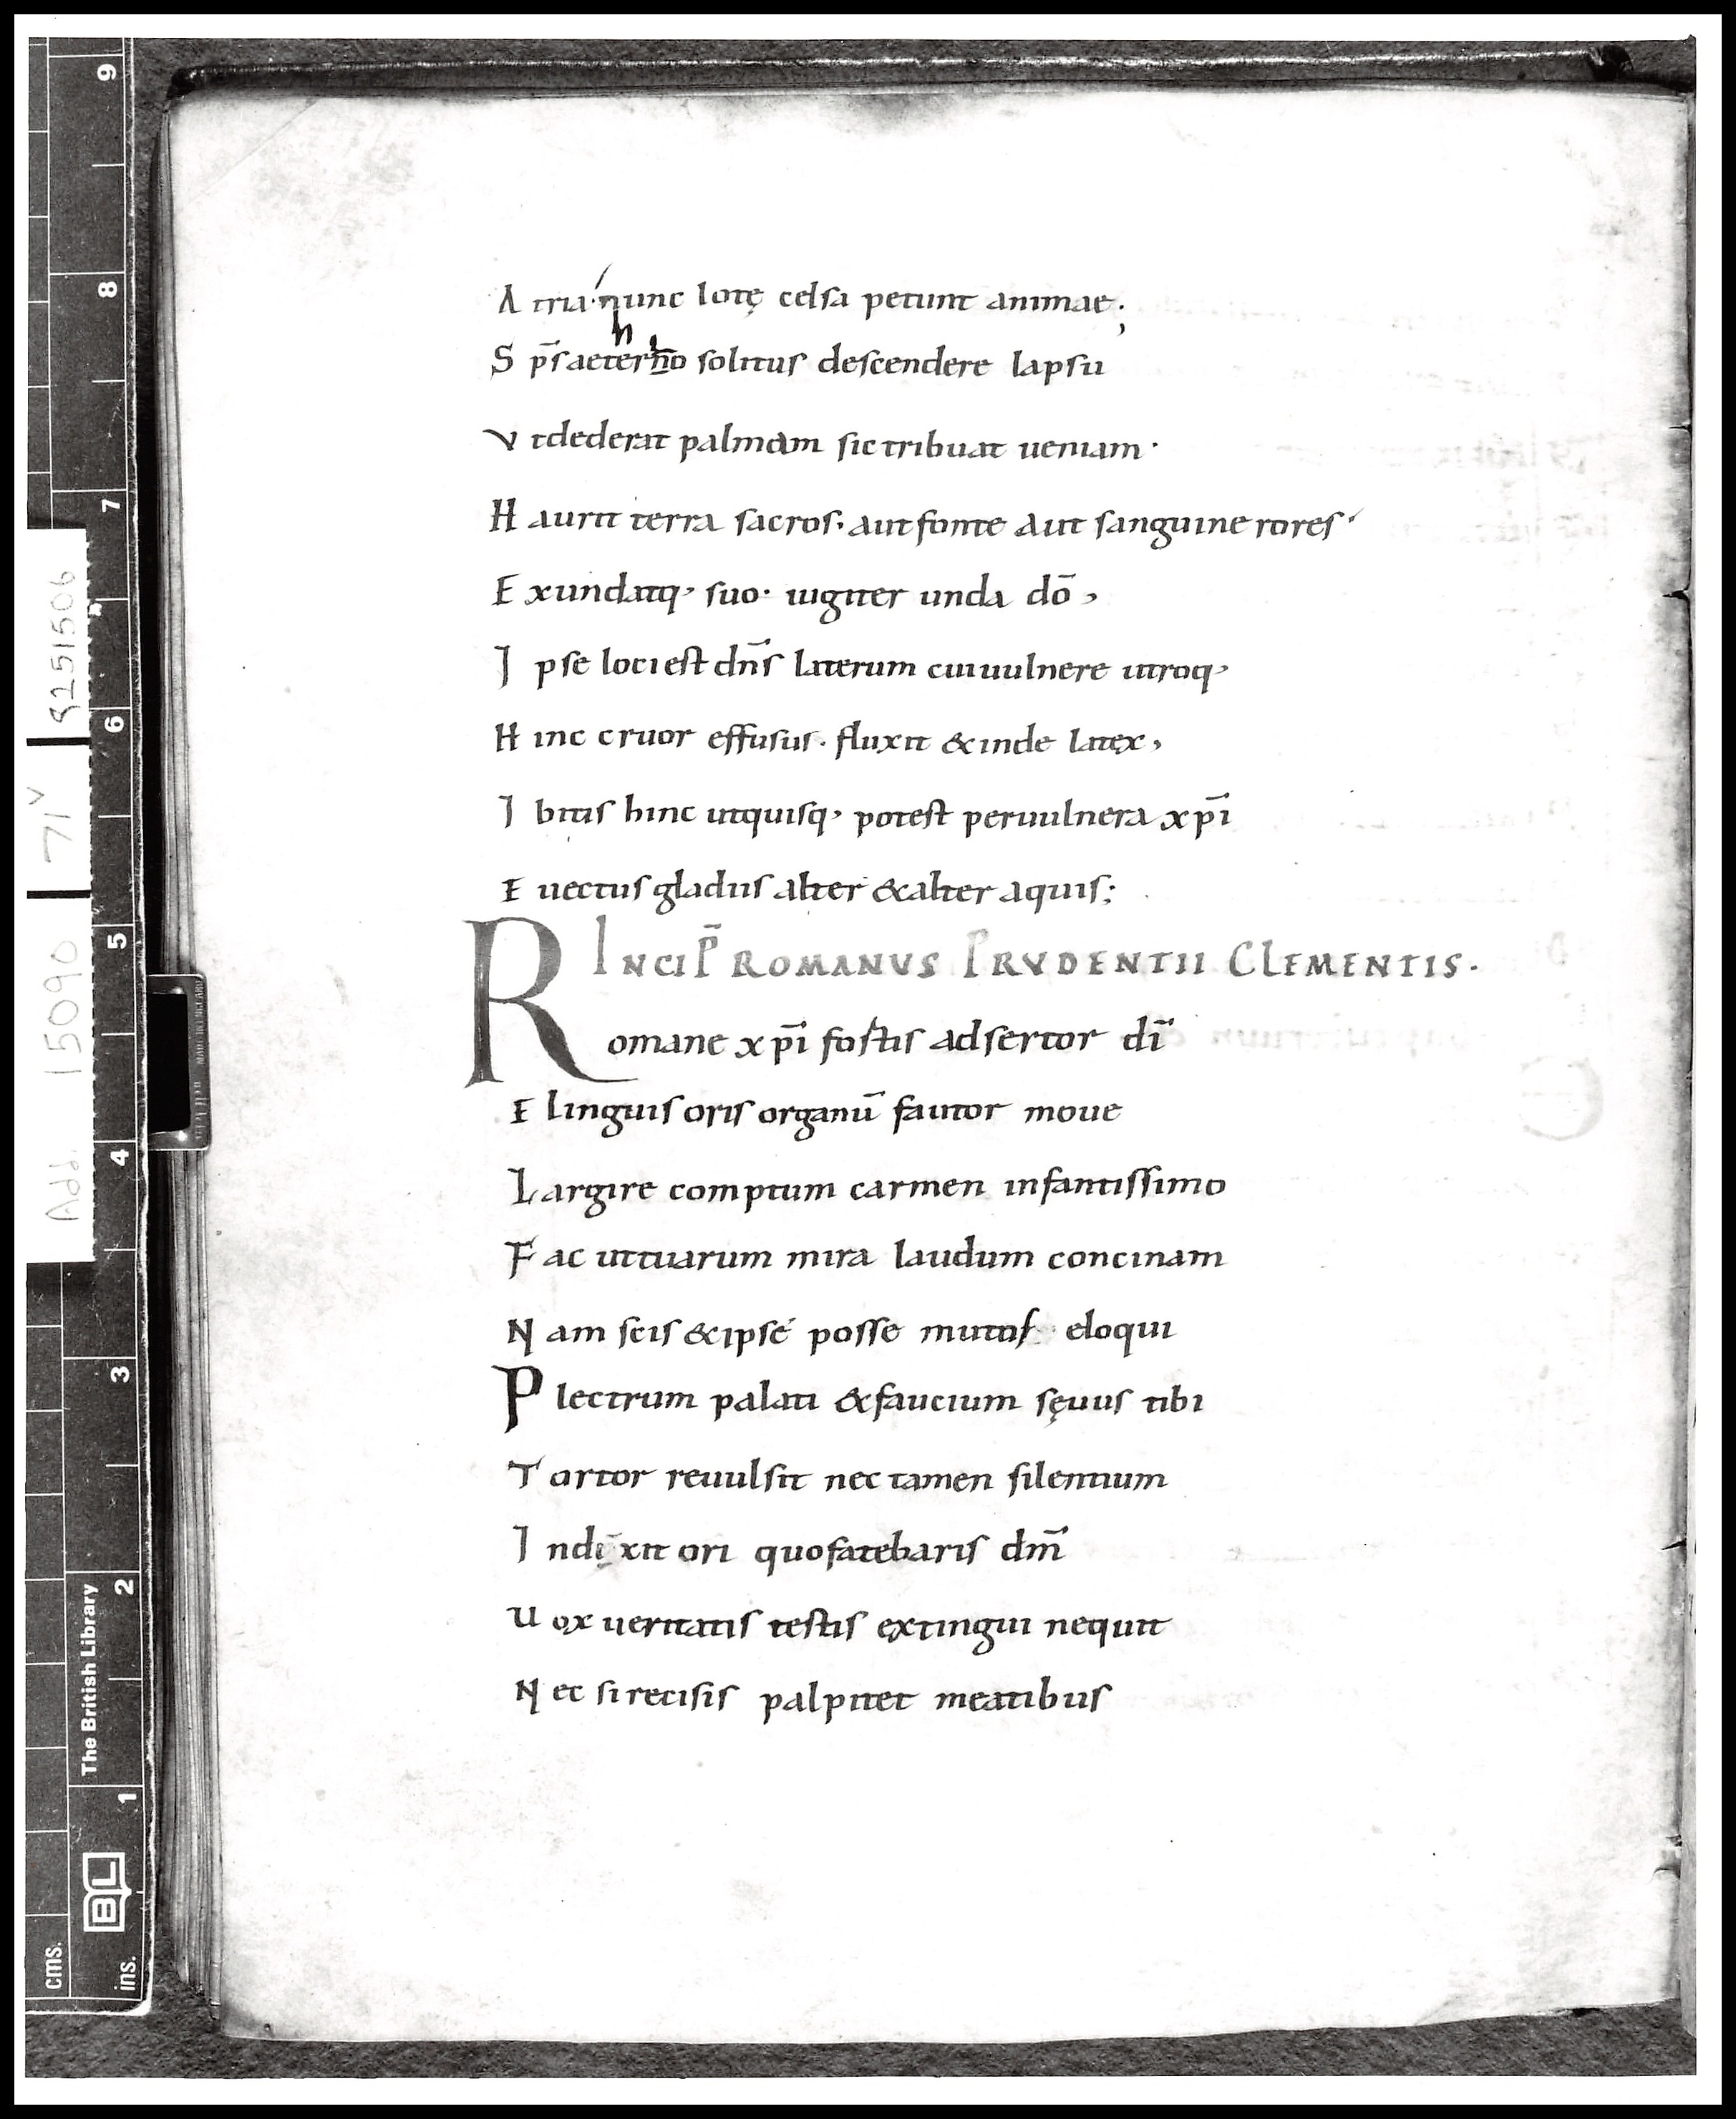 A tria· nunc lotę celsa petunt animae;
S p̄s aeterno solitus descendere lapsu
V tdederat palmam sic tribuat ueniam·
H aurit terra sacros· aut fonte aut sanguine rores
E xundatq· suo· iugiter unda dō,
I pse loci est dn̄s laterum cui uulnere utroq·
H inc cruor effusus· fluxit & inde latex,
I bitis hinc utquisq· potest per uulnera xp̄i
E uectus gladiis alter & alter aquis;
INCIP̄ ROMANVS PRVDENTII CLEMENTIS.
R omane xp̄i fostis adsertor dī
E linguis oris organū fautor moue
L argire comptum carmen infantissimo
F ac ut tuarum mira laudum concinam
N am scis & ipse posse mutos eloqui
P lectrum palati & faucium sęuus tibi
T ortor reuulsit nec tamen silentium
I ndixit ori quo fatebaris dm̄
U ox ueritatis testis extingui nequit
N ec si recisis palpitet meatibus
Add. 15090 | 71v | 8251506
The British Library
BL
cms.
ins.
1
2
3
4
5
6
7
8
9